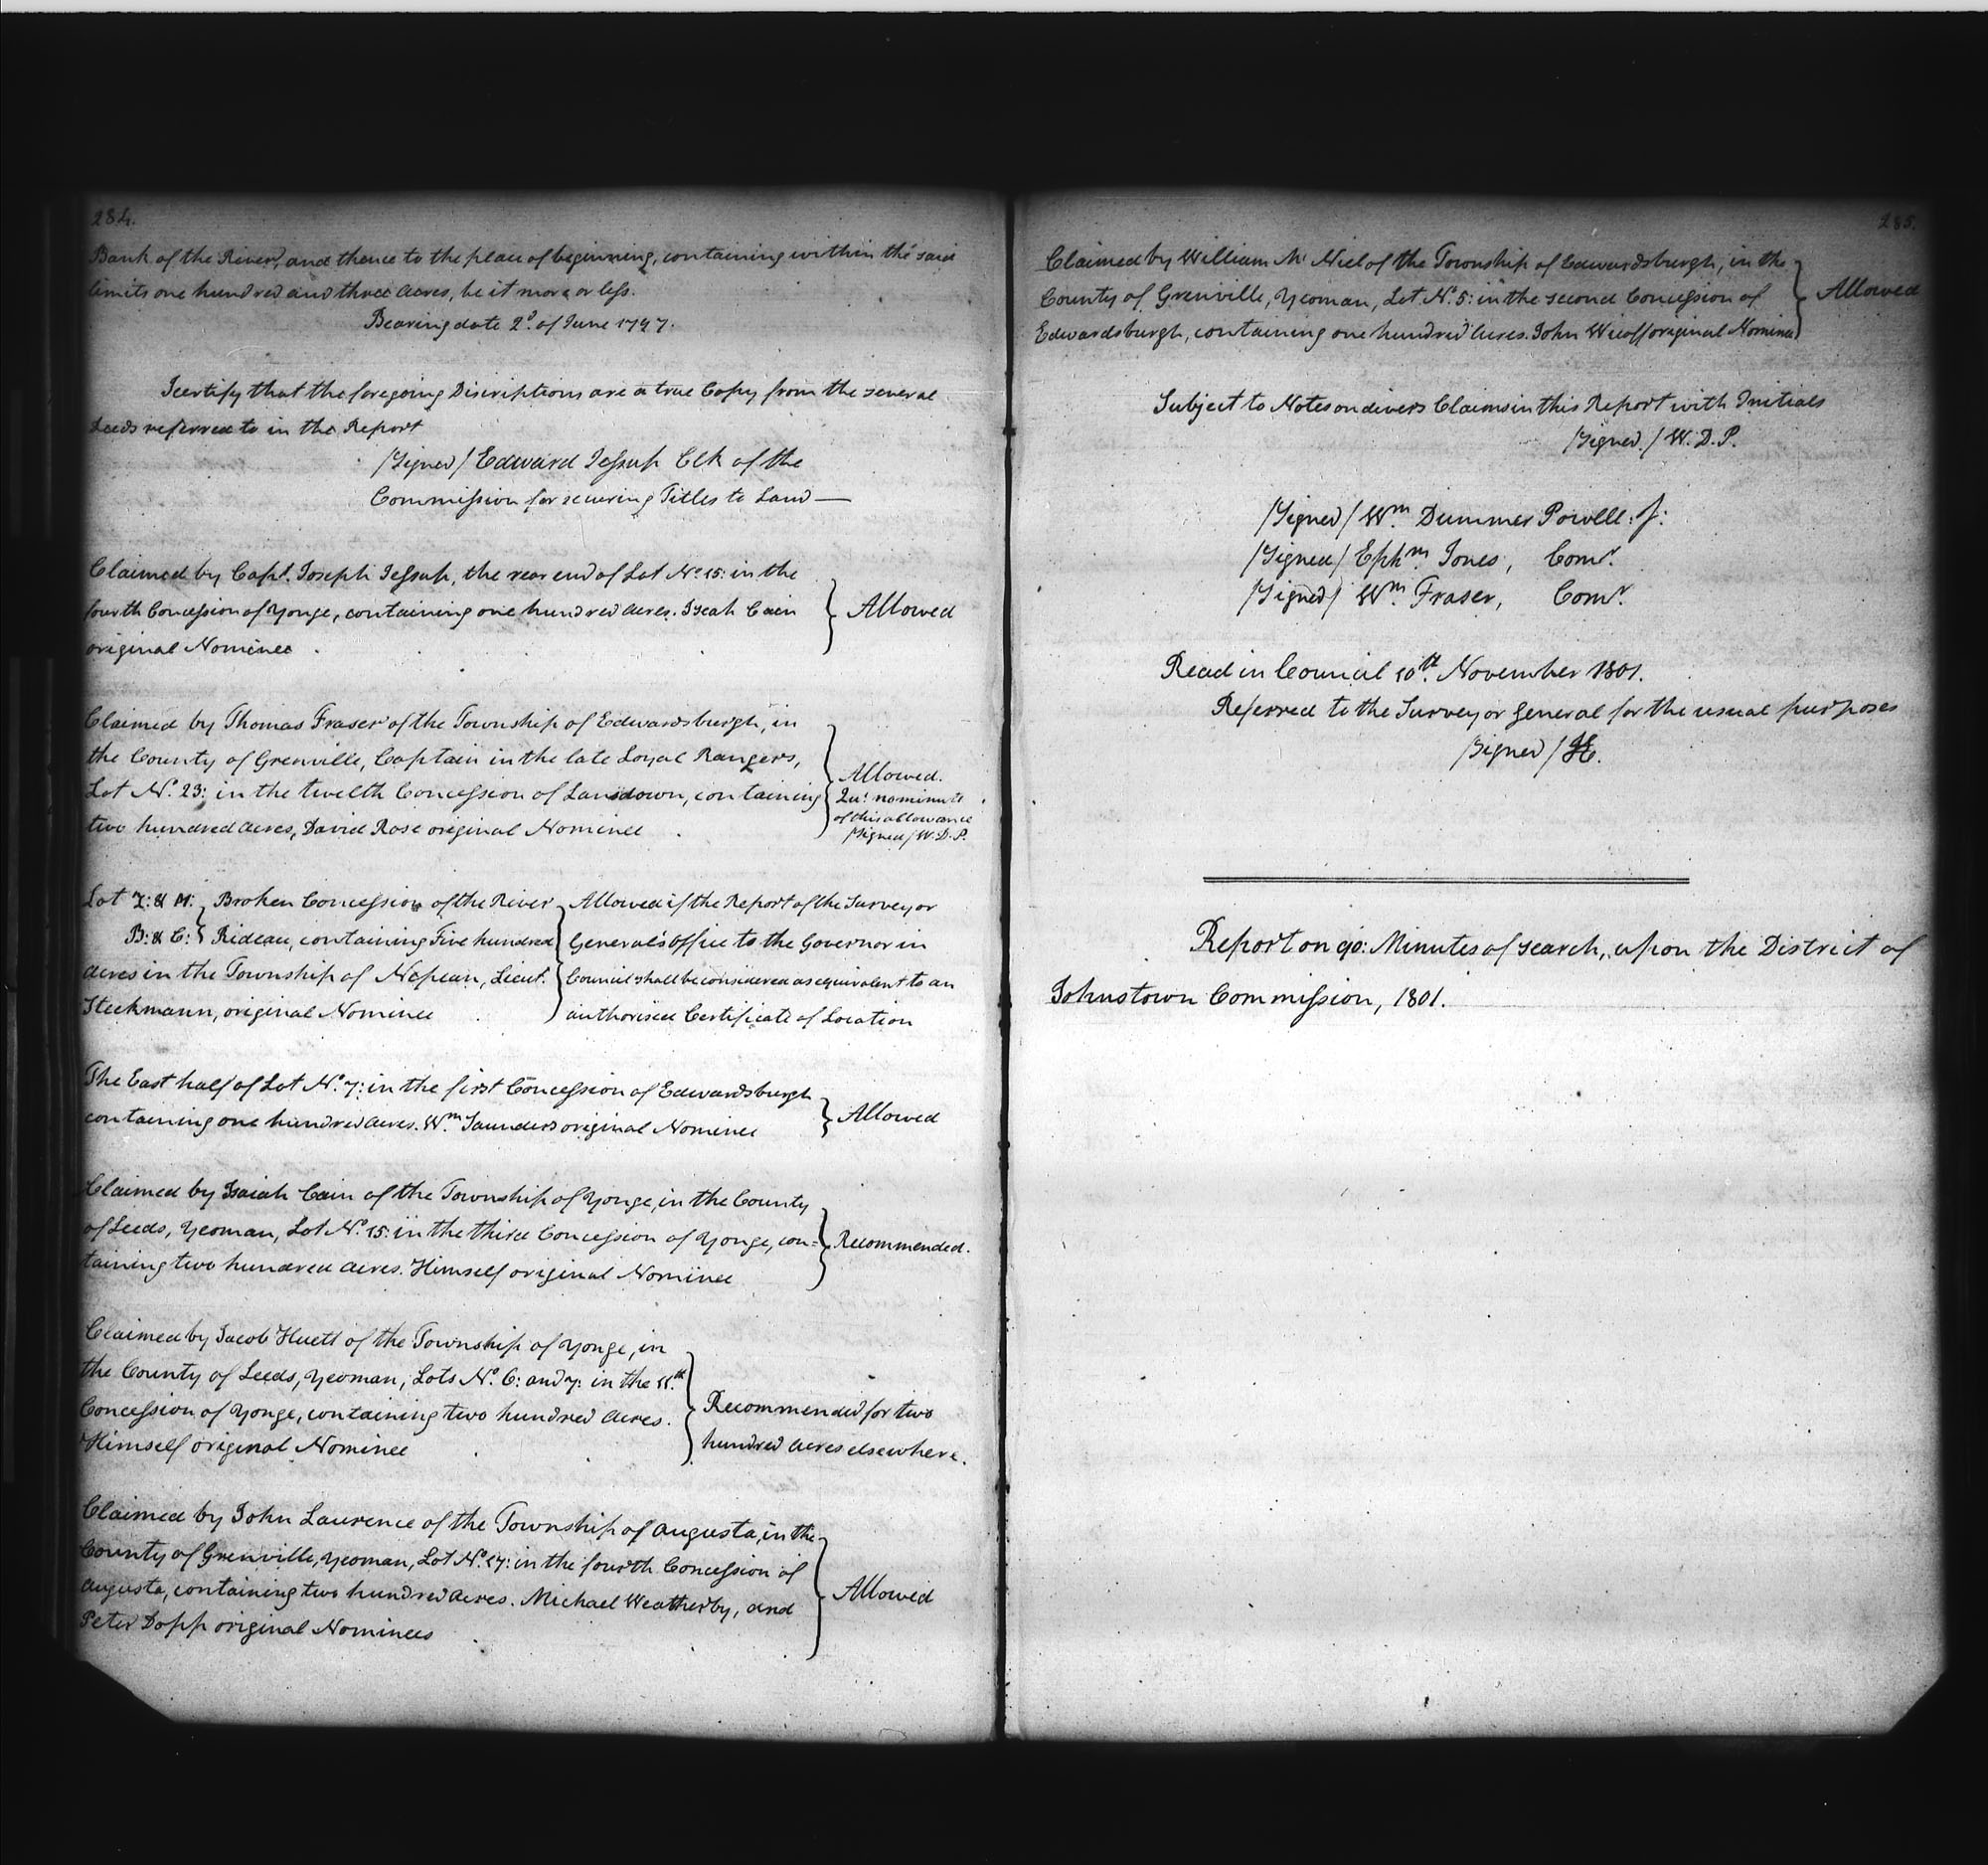 284.
Bank of the River, and thence to the place of beginning, containing within the said
limits one hundred and three acres, be it more or less.
Bearing date 2d. of June 1797.
I certify that the foregoing Discriptions are a true Copy from the several
Deeds referred to in the Report
/Signed/ Edward Jessup Clk of the
Commission for securing Titles to Land —
Claimed by Capt. Joseph Jessup, the rear end of Lot No. 15: in the
fourth Concession of Yonge, containing one hundred acres. Iseah Cain
original Nominee
Allowed
Claimed by Thomas Fraser of the Township of Edwardsburgh, in
the County of Grenville, Captain in the late Loyal Rangers,
Lot No. 23: in the twelth Concession of Lansdown, containing
two hundred acres, David Rose original Nominee
Allowed.
Qu: no minute
of this allowance
/Signed/ W.D.P.
Lot L: & M: Broken Concession of the River
B: & C: Rideau, containing Five hundred
acres in the Township of Nepean, Lieut.
Steckmann, original Nominee
Allowed if the Report of the Surveyor
General's Office to the Governor in
Council shall be considered as equivalent to an
authorised Certificate of Location
The East half of Lot No. 7: in the first Concession of Edwardsburgh
containing one hundred acres. Wm. Saunders original Nominee
Allowed
Claimed by Isaiah Cain of the Township of Yonge, in the County
of Leeds, Yeoman, Lot No. 15: in the third Concession of Yonge, con=
taining two hundred acres. Himself original Nominee
Recommended.
Claimed by Jacob Huett of the Township of Yonge, in
the County of Leeds, Yeoman, Lots No. 6: and 7: in the 11.th
Concession of Yonge, containing two hundred acres.
Himself original Nominee
Recommended for two
hundred acres elsewhere.
Claimed by John Laurence of the Township of Augusta, in the
County of Grenville, Yeoman, Lot No. 17: in the fourth Concession of
Augusta, containing two hundred acres. Michael Weatherby, and
Peter Dopp original Nominees
Allowed
285.
Claimed by William Mc Niel of the Township of Edwardsburgh, in the
County of Grenville, Yeoman, Lot No. 5: in the second Concession of
Edwardsburgh, containing one hundred acres. John Wicoff original Nominee
Allowed
Subject to Notes on divers Claims in this Report with Initials
/Signed./ W.D.P.
/Signed/ Wm. Dummer Powell: J:
/Signed/ Ephm. Jones, Comr.
/Signed/ Wm. Fraser, Comr.
Read in Council 10th. November 1801.
Referred to the Surveyor General for the usual purposes
/Signed/
Report on 90: Minutes of search, upon the District of
Johnstown Commission, 1801.